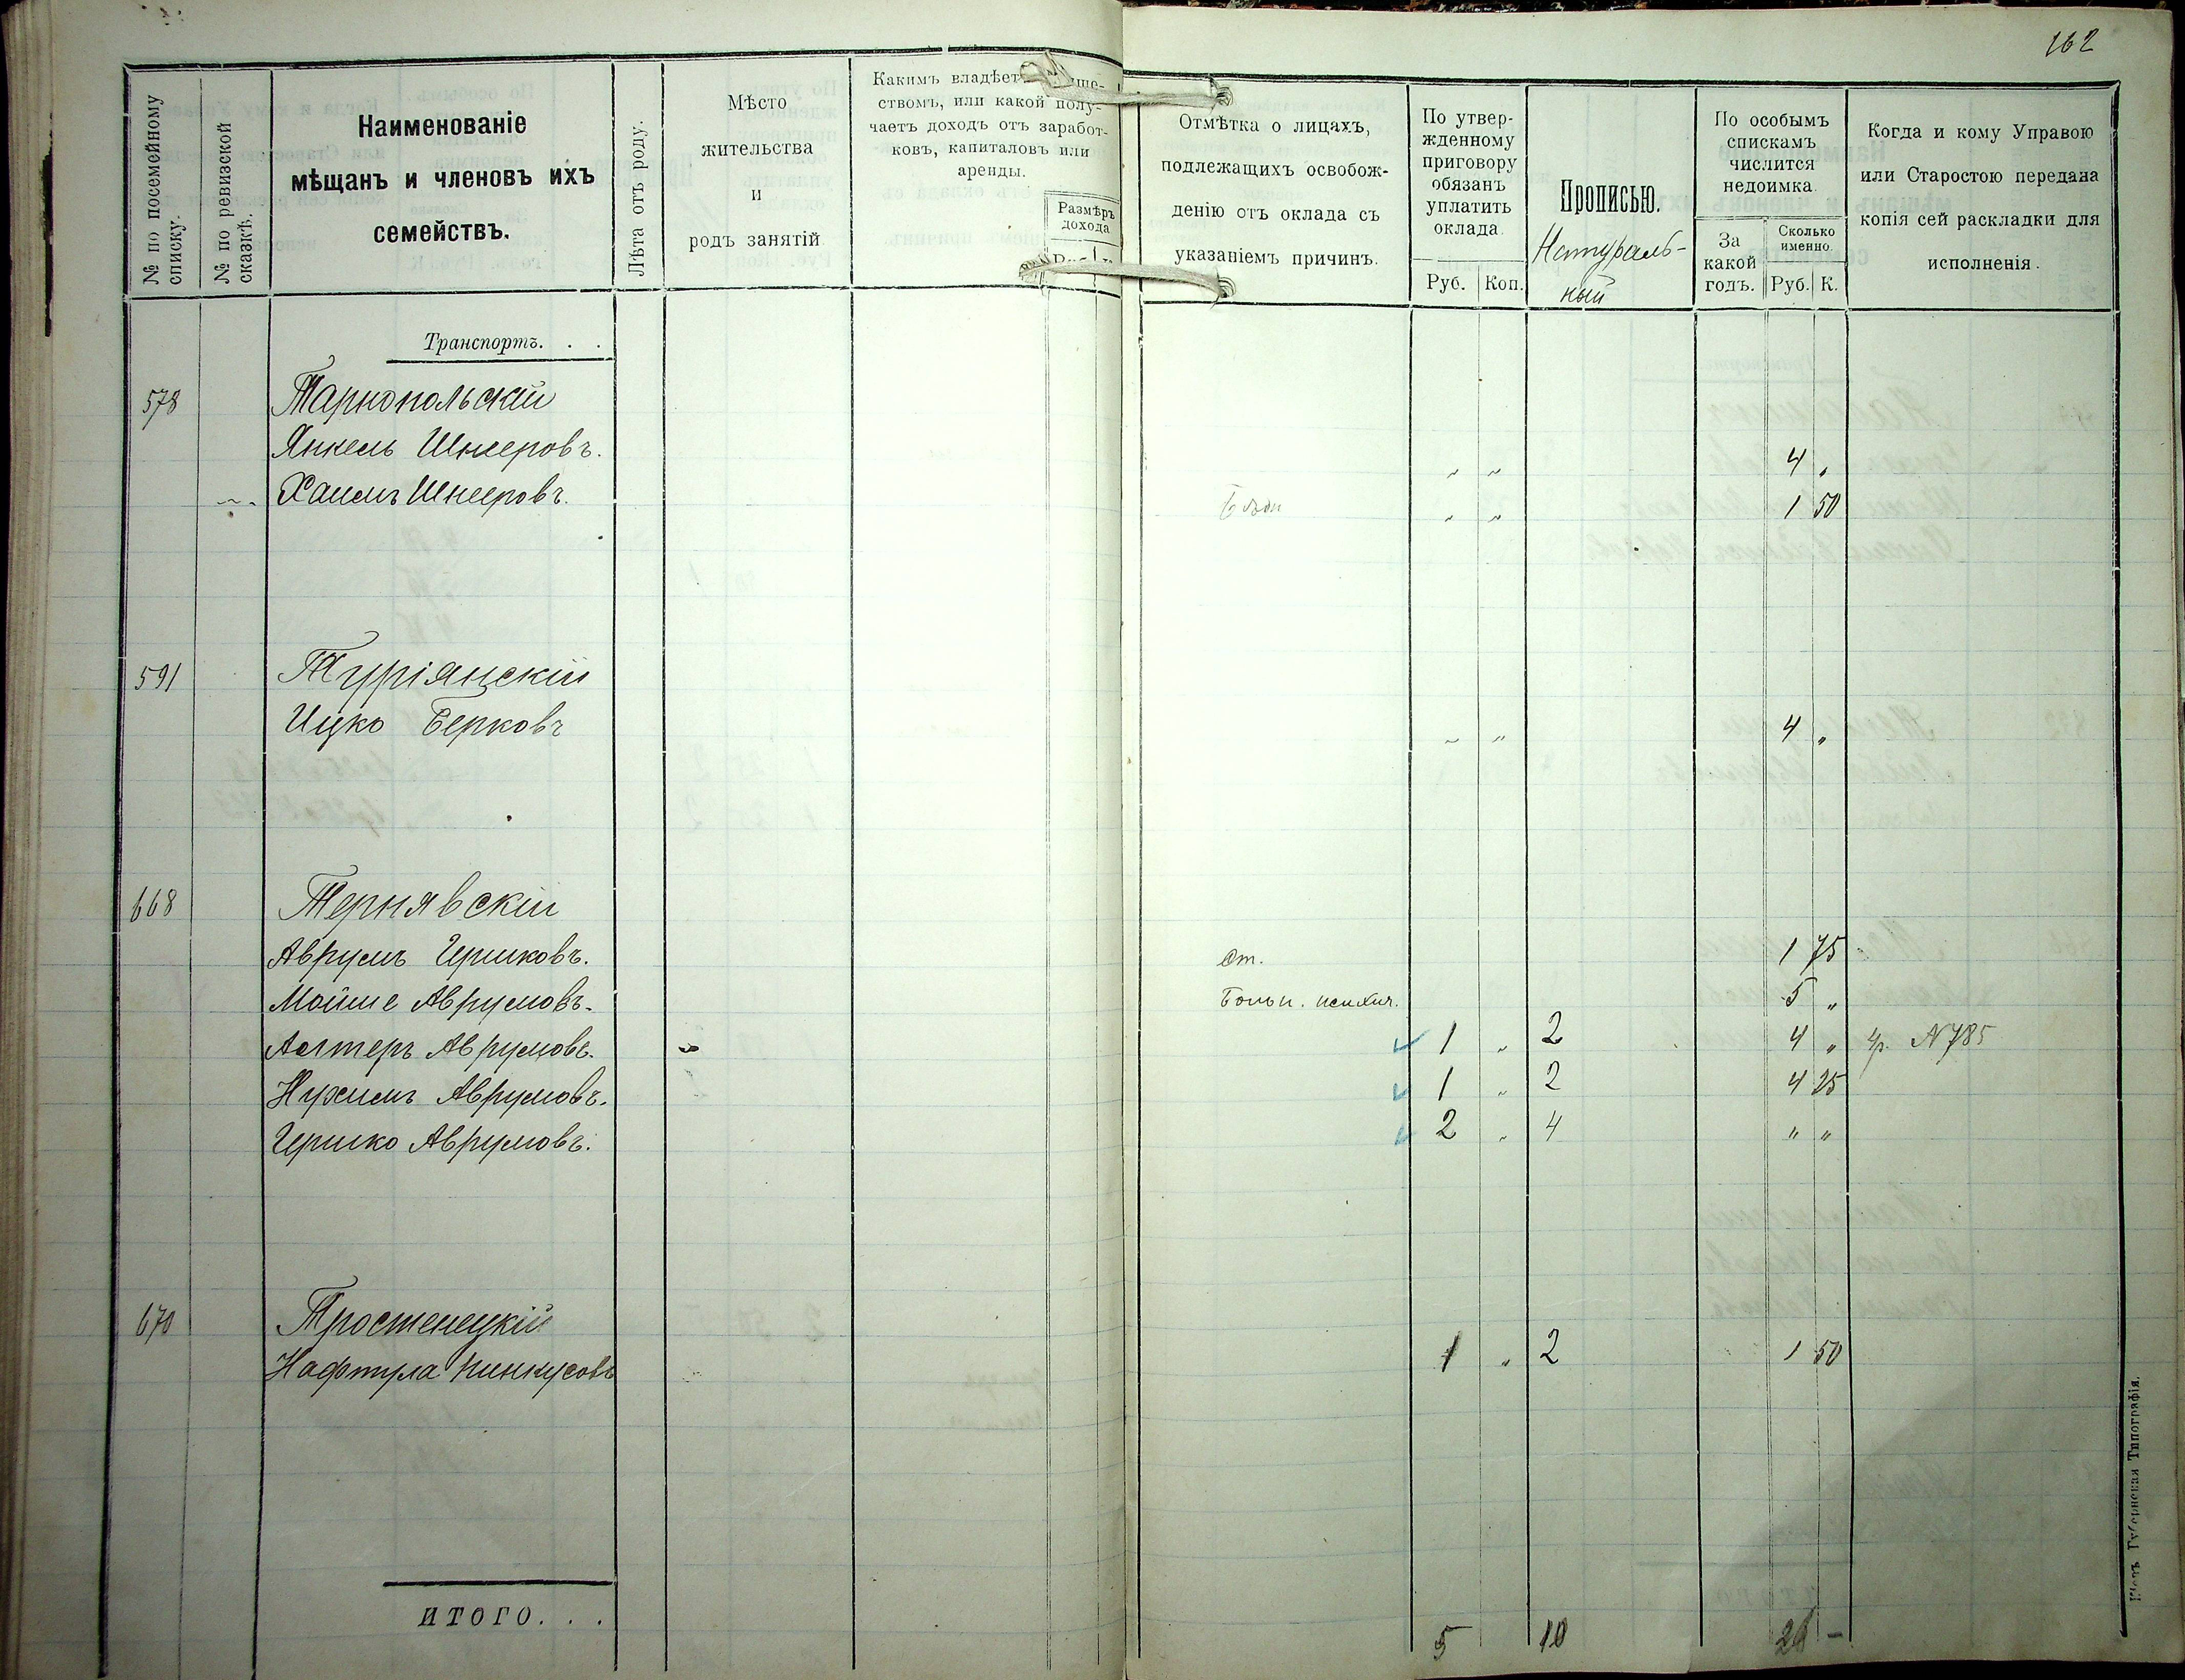 162
№ по посемейному списку.
№ по ревизской сказкѣ.
Наименованіе
мѣщанъ и членовъ ихъ
семействъ.
Лѣта отъ роду.
Мѣсто
жительства
и
родъ занятій
Какимъ владѣетъ
ствомъ, или какой полу-
чаетъ доходъ отъ заработ-
ковъ, капиталовъ или
аренды.
Размѣръ
дохода
Отмѣтка о лицахъ,
подлежащихъ освобож-
денію отъ оклада съ
указаніемъ причинъ.
По утвер-
жденному
приговору
обязанъ
уплатить
оклада
Руб. Коп.
Прописью.
Натураль-
ный
По особымъ
спискамъ
числится
недоимка.
За
какой
годъ.
Сколько
именно.
Руб. К.
Когда и кому Управою
или Старостою передана
копія сей раскладки для
исполненія.
Транспортъ. . .
578 Тарнопольскій
Янкель Шнееровъ. " " 4 "
Хаимъ Шнееровъ. " " 1 50
591 Туріянскій
Ицко Берковъ " " 4 "
668 Тернявскій
Аврумъ Гершковъ. От. 1 75
Мойше Аврумовъ. Больн. психич. 5 "
Алтеръ Аврумовъ. 1 " 2 4 " 4р. N 785
Нухимъ Аврумовъ. 1 " 2 4 25
Гершко Аврумовъ. 2 " 4 " "
670 Тростенецкій
Нафтула Пинкусовъ 1 " 2 1 50
ИТОГО. . . 5 10 26 -
Кіевъ Губернская Типографія.